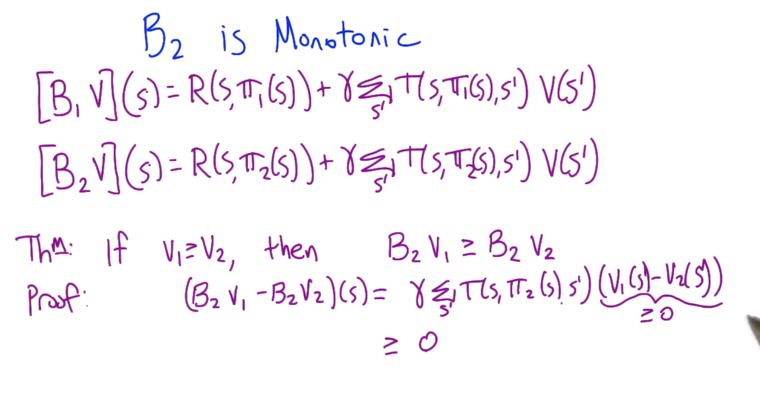 B₂ is Monotonic
[B₁ V](s) = R(s, π₁(s)) + γ Σ_s' T(s, π₁(s), s') V(s')
[B₂ V](s) = R(s, π₂(s)) + γ Σ_s' T(s, π₂(s), s') V(s')
Thᴹ: If V₁ ≥ V₂, then B₂ V₁ ≥ B₂ V₂
Proof: (B₂ V₁ - B₂ V₂)(s) = γ Σ_s' T(s, π₂(s), s') (V₁(s') - V₂(s'))
≥ 0
≥ 0